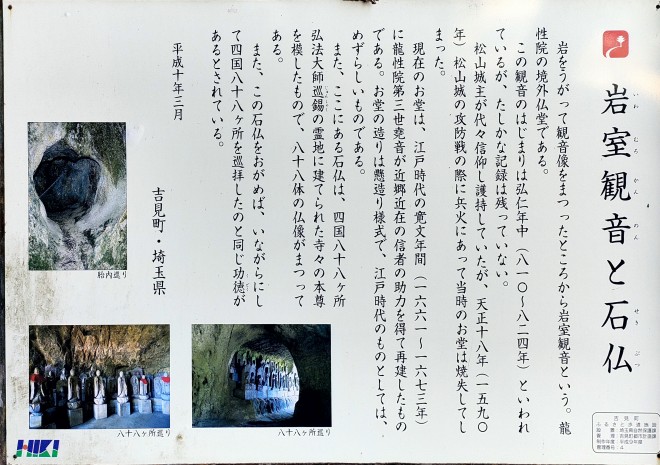 岩室観音と石仏
いわ むろ かん のん せき ぶつ
岩をうがって観音像をまつったところから岩室観音という。龍
性院の境外仏堂である。
この観音のはじまりは弘仁年中（八一〇〜八二四年）といわれ
ているが、たしかな記録は残っていない。
松山城主が代々信仰し護持していたが、天正十八年（一五九〇
年）松山城の攻防戦の際に兵火にあって当時のお堂は焼失してし
まった。
現在のお堂は、江戸時代の寛文年間（一六六一〜一六七三年）
に龍性院第三世堯音が近郷近在の信者の助力を得て再建したもの
である。お堂の造りは懸造り様式で、江戸時代のものとしては、
めずらしいものである。
また、ここにある石仏は、四国八十八ヶ所
弘法大師巡錫の霊地に建てられた寺々の本尊
を模したもので、八十八体の仏像がまつって
ある。
また、この石仏をおがめば、いながらにし
て四国八十八ヶ所を巡拝したのと同じ功徳が
あるとされている。
平成十年三月
吉見町・埼玉県
胎内巡り
八十八ヶ所巡り
八十八ヶ所巡り
HIKI
吉見町
ふるさと歩道施設
設置 埼玉県自然保護課
管理 吉見町都市計画課
制作年度 平成9年度
管理番号 4